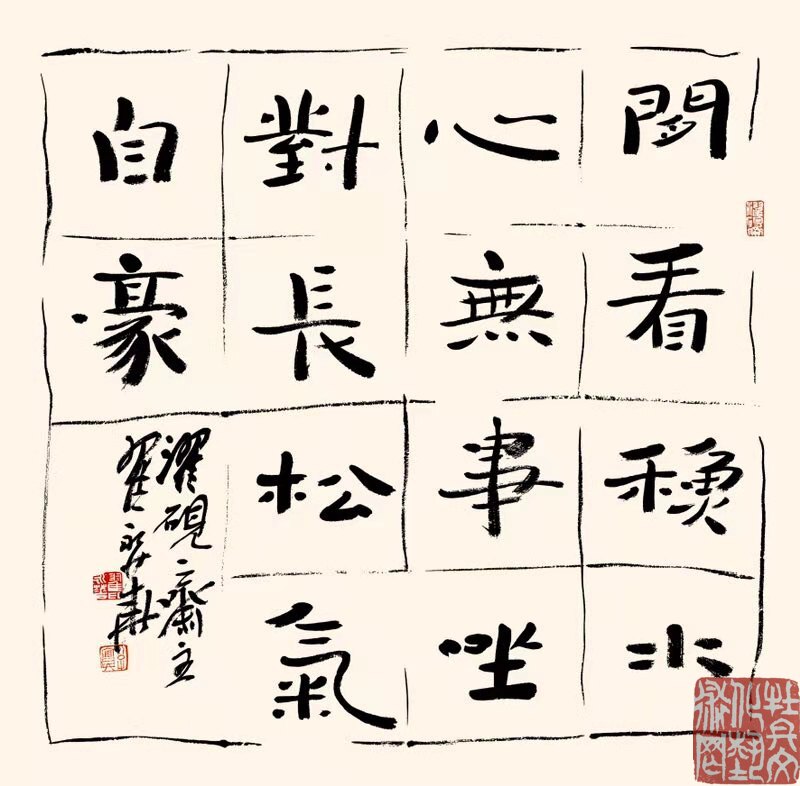 閒看秋水
心無事坐
對長松氣
自豪
濯硯齋主